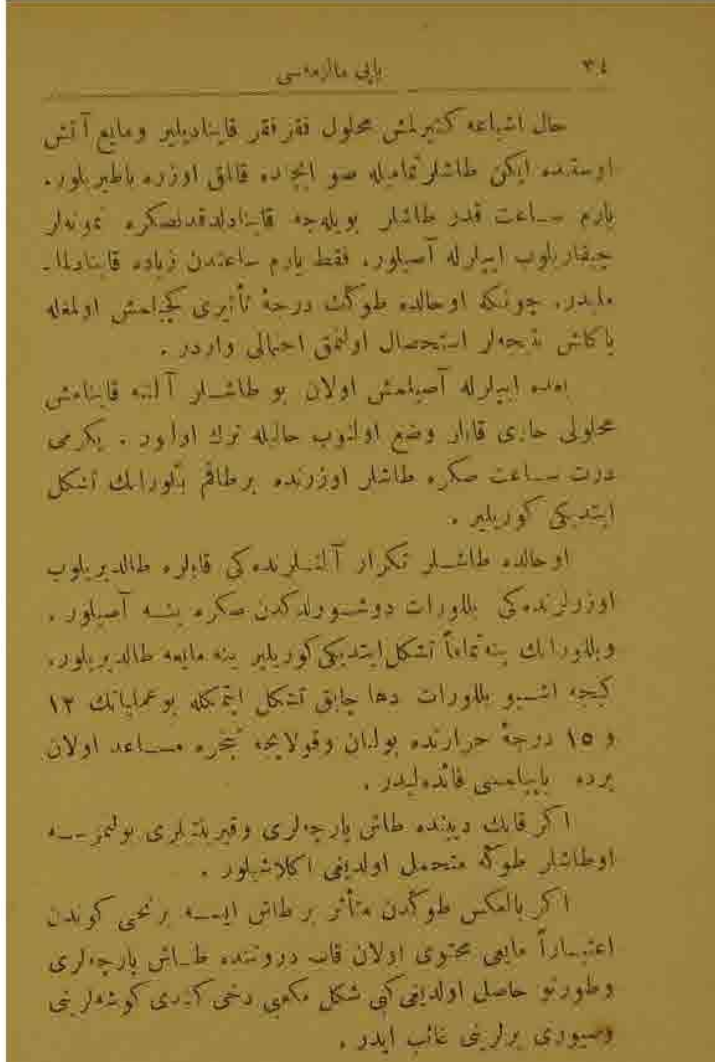 ٣٤
یاپی مالزمه‌سی
حال اشباعه كتیرلمش محلول فقر فقر قاینادیلیر و مایع آتش
اوستنده ایكن طاشلر تمامیله صو ایچنده قالمق اوزره باطیریلور.
یارم ساعت قدر طاشلر بویله‌جه قاینادلدقدنصكره نمونه‌لر
چیقاریلوب ایپلرله آصیلور. فقط یارم ساعتدن زیاده قاینادلما-
ملیدر. چونكه اوحالده طوڭك درجهٔ تأثیری كچیلمش اولمغله
یاكلش نتیجه‌لر استحصال اولنمق احتمالی واردر.
بعده ایپلرله آصیلمش اولان بو طاشلر آلتنه قاینامش
محلولی حاوی قاپلر وضع اولنوب حالیله ترك اولنور. یكرمی
درت ساعت صكره طاشلر اوزرنده برطاقم بللوراتك تشكل
ایتدیكی كوریلیر.
اوحالده طاشلر تكرار آلتلرنده‌كی قاپلره طالدیریلوب
اوزرلرنده‌كی بللورات دوشورلدكدن صكره ینه آصیلور.
وبللوراتك ینه تماماً تشكل ایتدیكی كوریلیر ینه مایعه طالدیریلور.
كیجه اشبو بللورات دها چابق تشكل ایتمكله بوعملیاتك ١٢
و ١٥ درجهٔ حرارتده بولنان وقولایجه تبخره مساعد اولان
یرده یاپیلمسی فائده‌لیدر.
اكر قابك دیبنده طاش پارچه‌لری وقیرینتیلری بولنمزسه
اوطاشلر طوڭه متحمل اولدیغی اكلاشیلور.
اكر بالعكس طوڭدن متأثر بر طاش ایسه برنجی كوندن
اعتباراً مایعی محتوی اولان قاب دروننده طاش پارچه‌لری
وطورتو حاصلی اولدیغی كبی شكل مكعبی دخی كندی كوشه‌لرینی
وسیوری یرلرینی غائب ایدر.